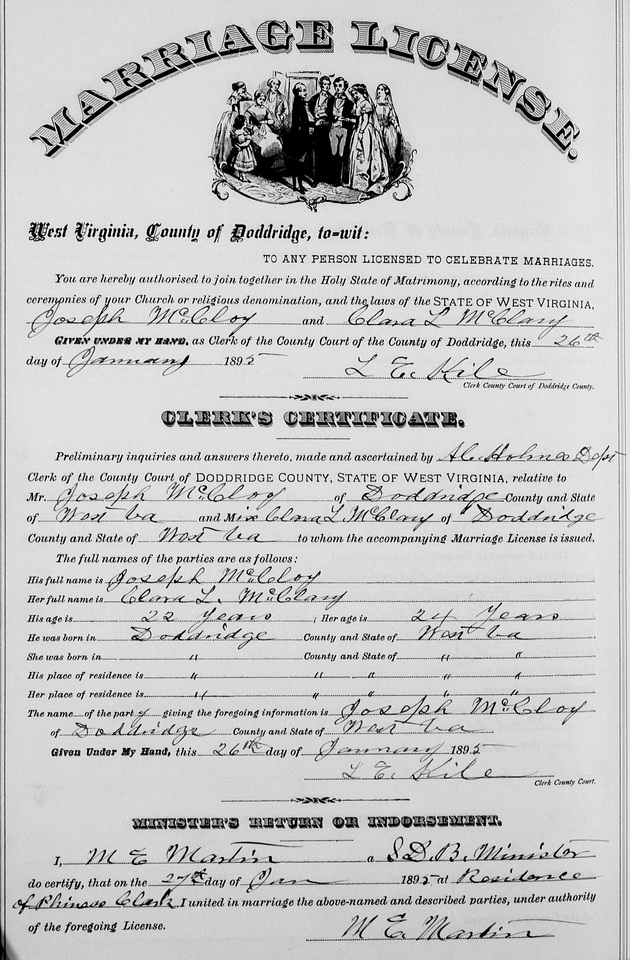 MARRIAGE LICENSE.
West Virginia, County of Doddridge, to-wit:
TO ANY PERSON LICENSED TO CELEBRATE MARRIAGES.
You are hereby authorised to join together in the Holy State of Matrimony, according to the rites and
ceremonies of your Church or religious denomination, and the laws of the STATE OF WEST VIRGINIA,
Joseph McCloy and Clara L McClary
GIVEN UNDER MY HAND, as Clerk of the County Court of the County of Doddridge, this 26th
day of January 1895
L E. Kile
Clerk County Court of Doddridge County.
CLERK'S CERTIFICATE.
Preliminary inquiries and answers thereto, made and ascertained by Holmes Dept
Clerk of the County Court of DODDRIDGE COUNTY, STATE OF WEST VIRGINIA, relative to
Mr. Joseph McCloy of Doddridge County and State
of West Va and Miss Clara L McClary of Doddridge
County and State of West Va to whom the accompanying Marriage License is issued.
The full names of the parties are as follows:
His full name is Joseph McCloy
Her full name is Clara L. McClary
His age is 22 Years ; Her age is 24 Years
He was born in Doddridge County and State of West Va
She was born in " County and State of " "
His place of residence is " " " " "
Her place of residence is " " " " "
The name of the party giving the foregoing information is Joseph McCloy
of Doddridge County and State of West Va
Given Under My Hand, this 26th day of January 1895
L E. Kile
Clerk County Court.
MINISTER'S RETURN OR INDORSEMENT.
I, M E Martin a S. D. B. Minister
do certify, that on the 27th day of Jan 1895 at Residence
of Phineas Clark I united in marriage the above-named and described parties, under authority
of the foregoing License.
M E. Martin